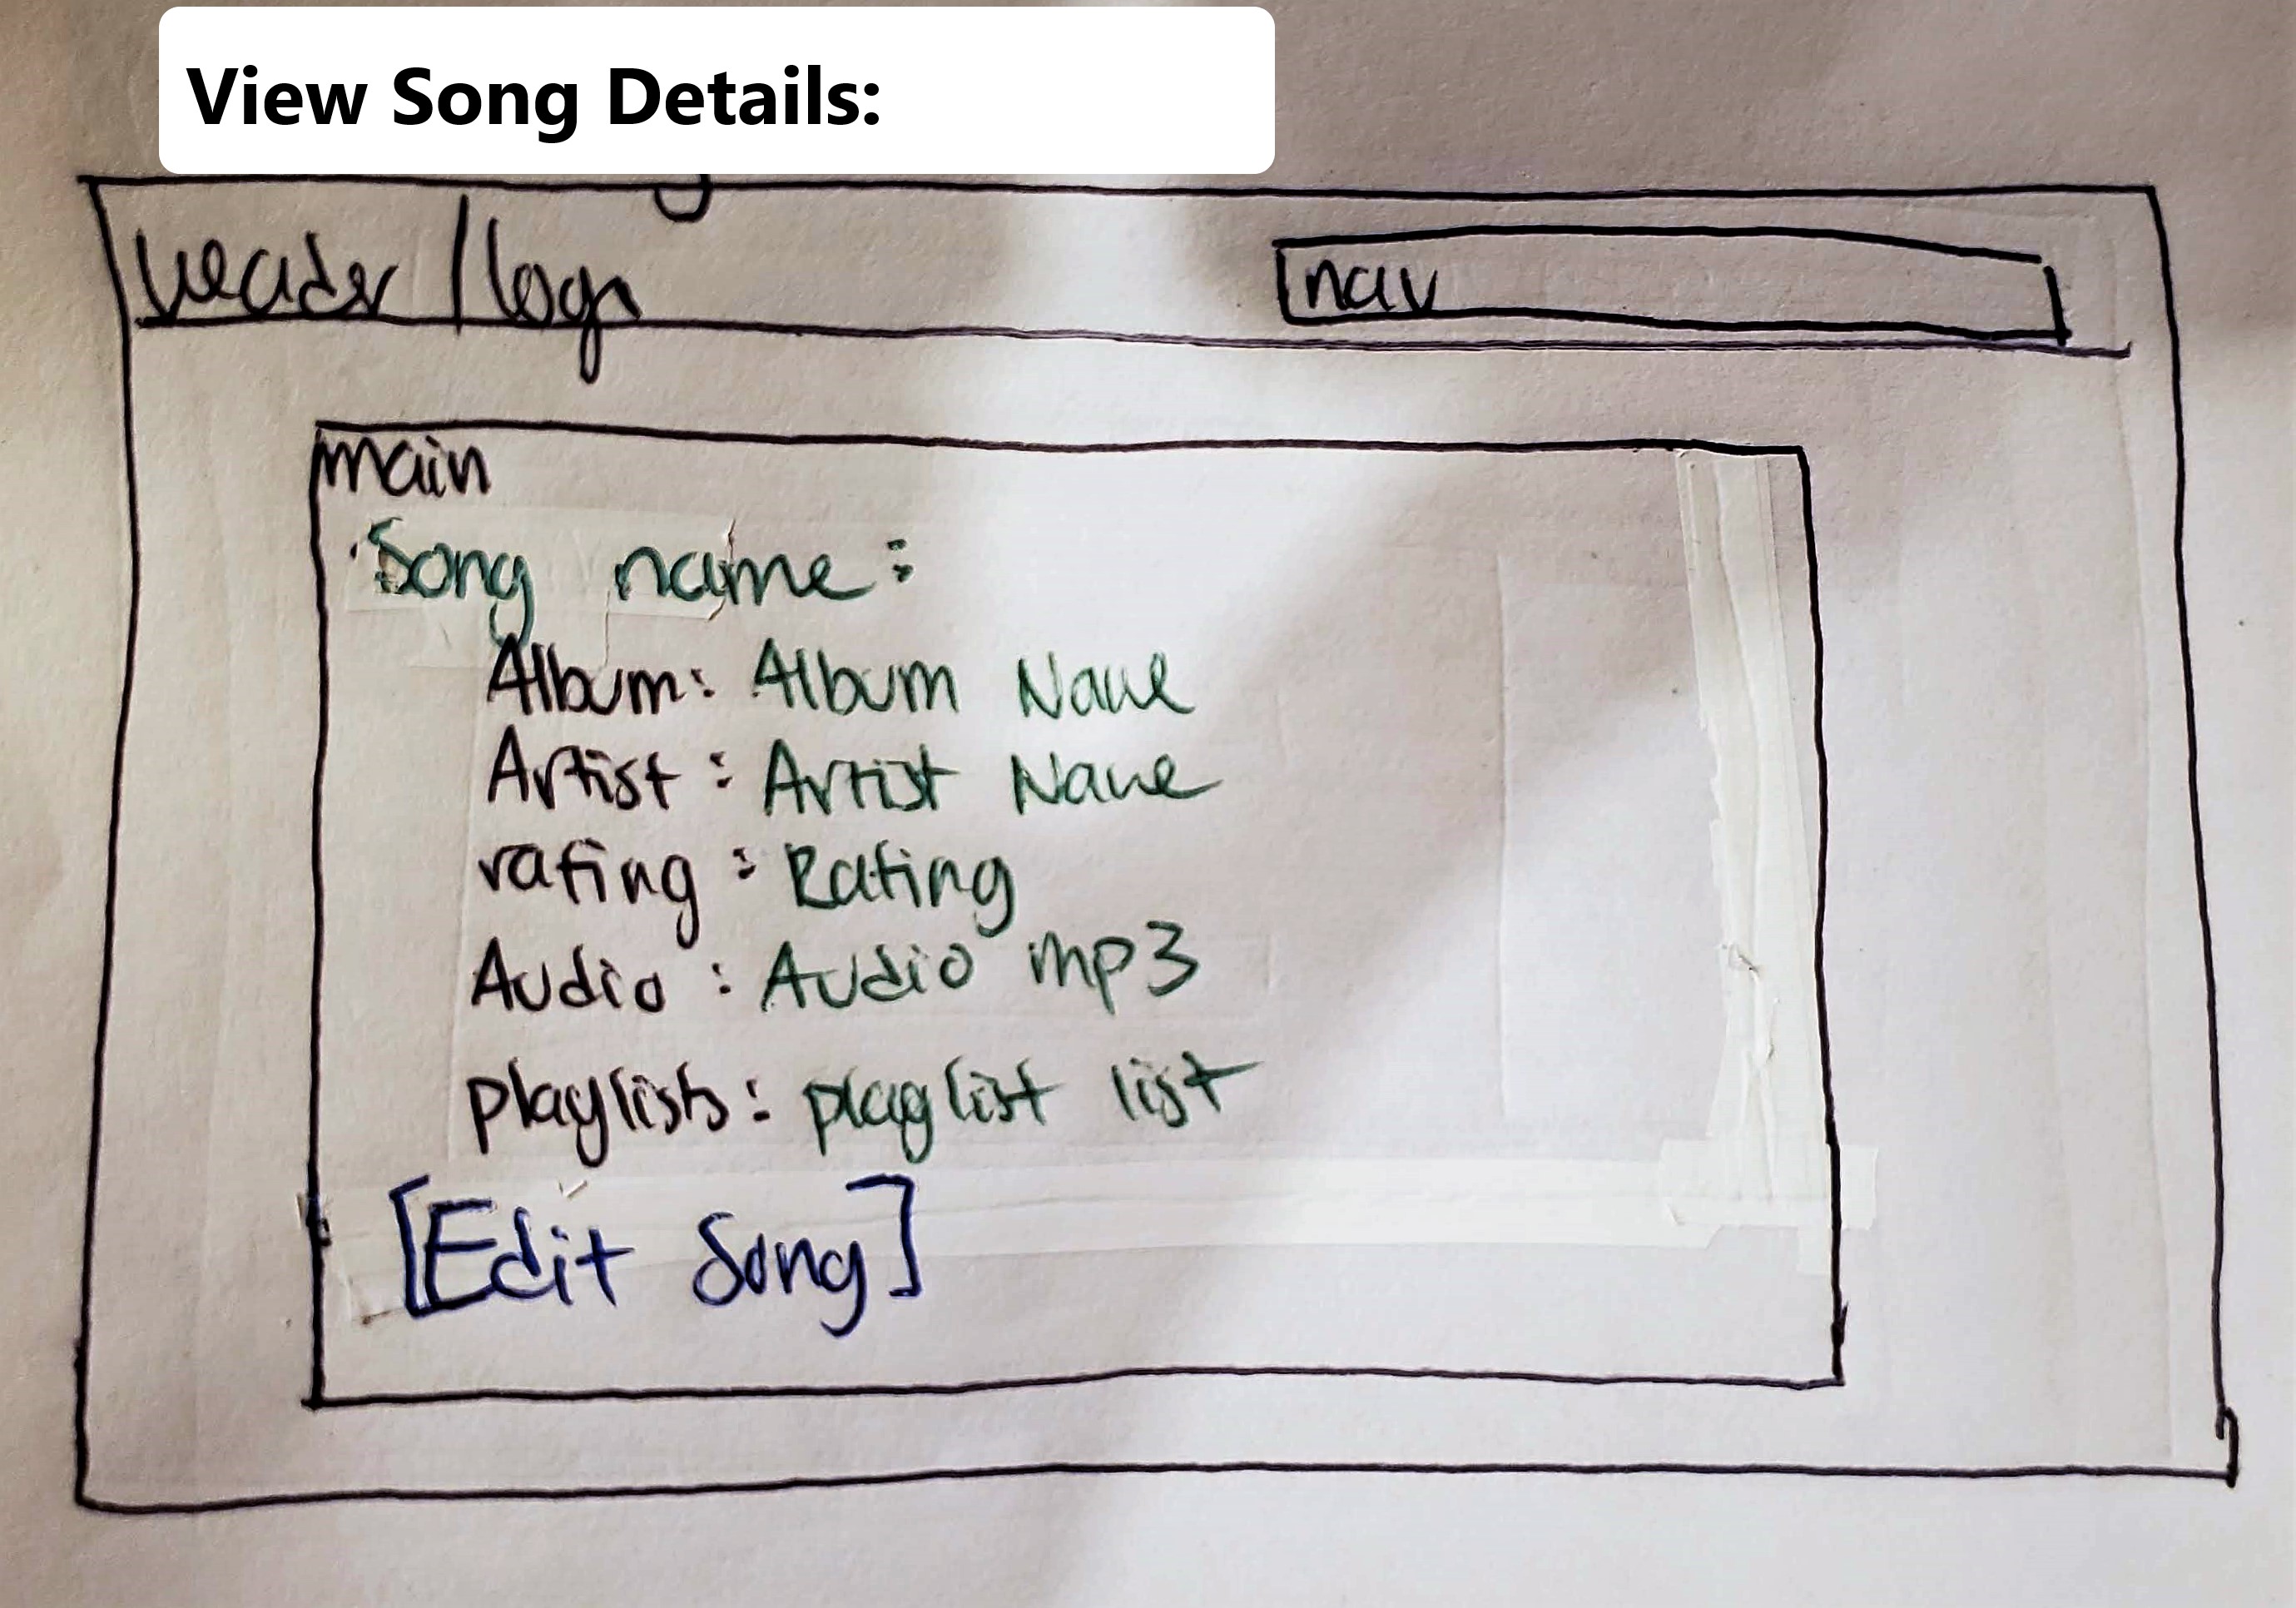 View Song Details:
header / logo
nav
main
Song name:
Album: Album Name
Artist: Artist Name
rating: Rating
Audio: Audio mp3
playlists: playlist list
[Edit Song]